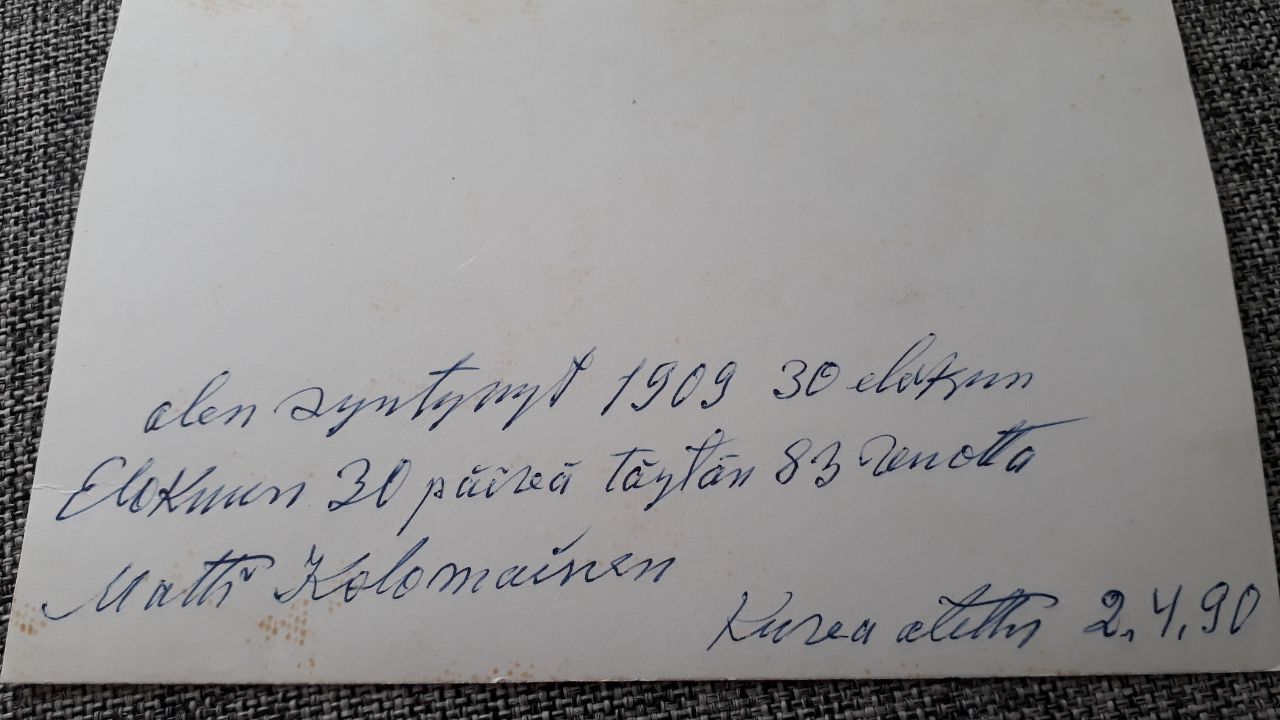 olen syntynyt 1909 30 elokun
Elokuun 30 päivä täytän 83 vuotta
Matti Kolomainen
Kuva otettu 2.4.90